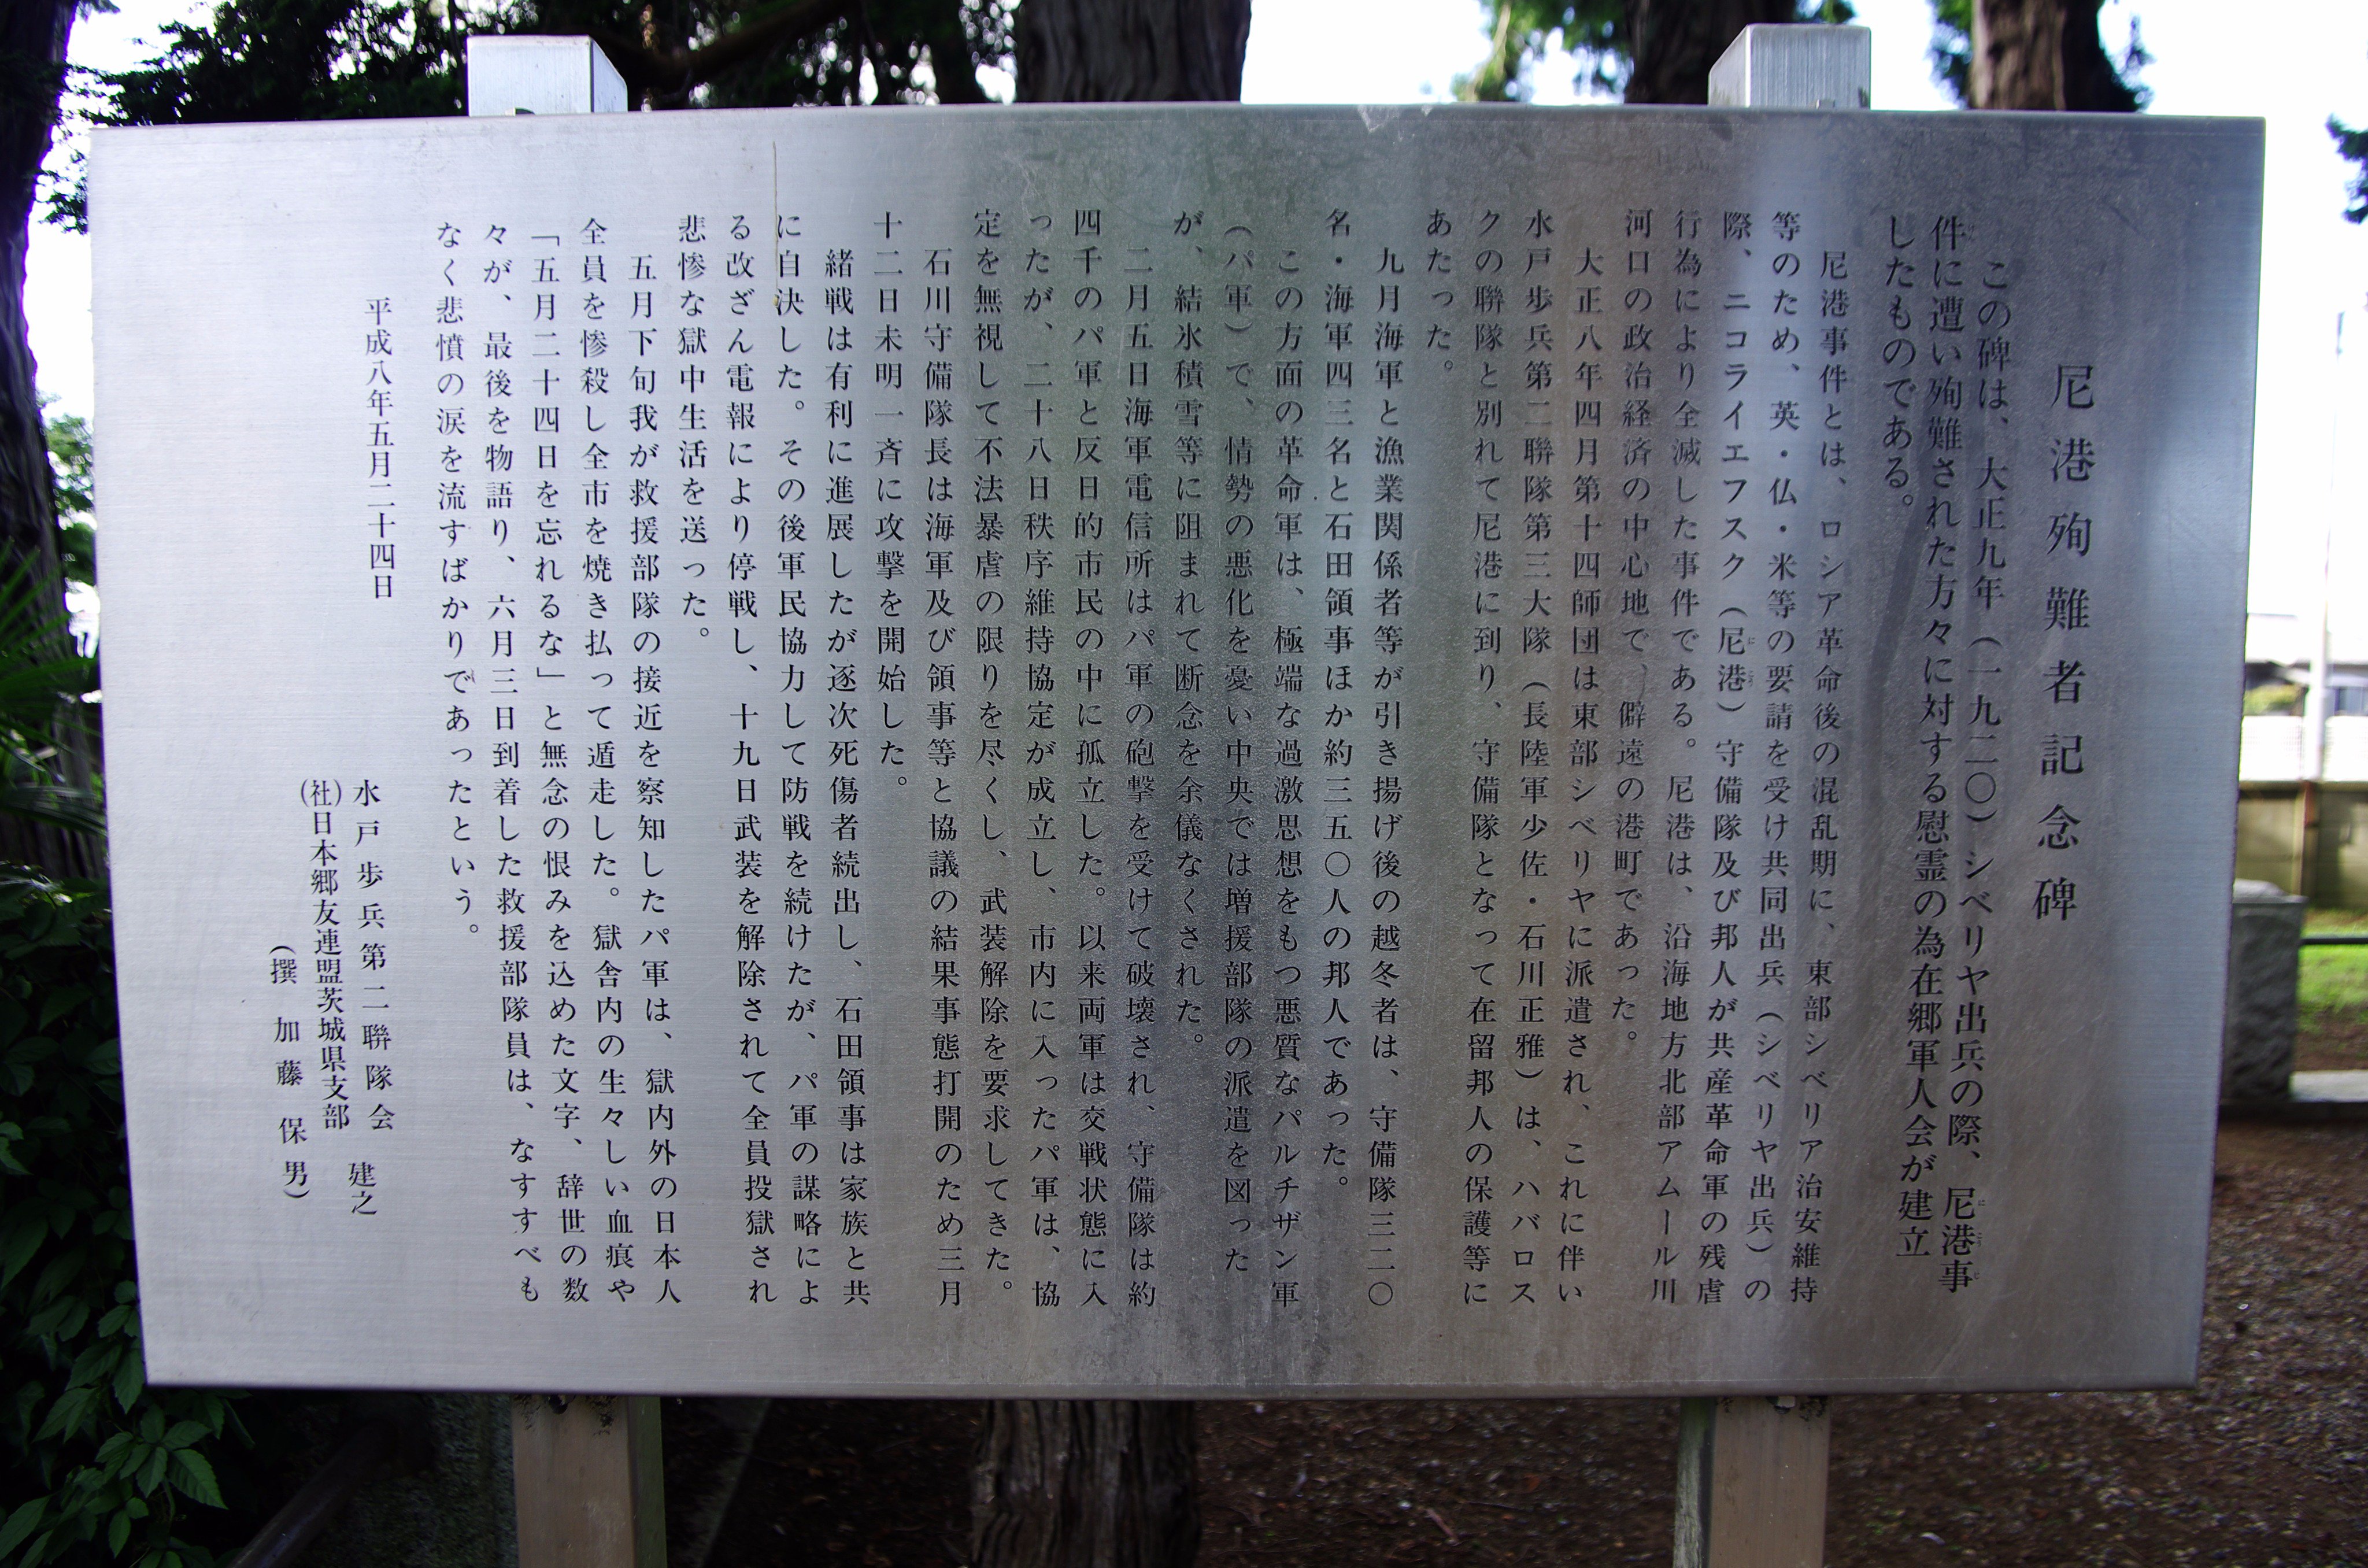 尼港殉難者記念碑
この碑は、大正九年（一九二〇）シベリヤ出兵の際、尼港事
件に遭い殉難された方々に対する慰霊の為在郷軍人会が建立
したものである。
尼港事件とは、ロシア革命後の混乱期に、東部シベリア治安維持
等のため、英・仏・米等の要請を受け共同出兵（シベリヤ出兵）の
際、ニコライエフスク（尼港）守備隊及び邦人が共産革命軍の残虐
行為により全滅した事件である。尼港は、沿海地方北部アムール川
河口の政治経済の中心地で、僻遠の港町であった。
大正八年四月第十四師団は東部シベリヤに派遣され、これに伴い
水戸歩兵第二聯隊第三大隊（長陸軍少佐・石川正雅）は、ハバロス
クの聯隊と別れて尼港に到り、守備隊となって在留邦人の保護等に
あたった。
九月海軍と漁業関係者等が引き揚げ後の越冬者は、守備隊三二〇
名・海軍四三名と石田領事ほか約三五〇人の邦人であった。
この方面の革命軍は、極端な過激思想をもつ悪質なパルチザン軍
（パ軍）で、情勢の悪化を憂い中央では増援部隊の派遣を図った
が、結氷積雪等に阻まれて断念を余儀なくされた。
二月五日海軍電信所はパ軍の砲撃を受けて破壊され、守備隊は約
四千のパ軍と反日的市民の中に孤立した。以来両軍は交戦状態に入
ったが、二十八日秩序維持協定が成立し、市内に入ったパ軍は、協
定を無視して不法暴虐の限りを尽くし、武装解除を要求してきた。
石川守備隊長は海軍及び領事等と協議の結果事態打開のため三月
十二日未明一斉に攻撃を開始した。
緒戦は有利に進展したが逐次死傷者続出し、石田領事は家族と共
に自決した。その後軍民協力して防戦を続けたが、パ軍の謀略によ
る改ざん電報により停戦し、十九日武装を解除されて全員投獄され
悲惨な獄中生活を送った。
五月下旬我が救援部隊の接近を察知したパ軍は、獄内外の日本人
全員を惨殺し全市を焼き払って遁走した。獄舎内の生々しい血痕や
「五月二十四日を忘れるな」と無念の恨みを込めた文字、辞世の数
々が、最後を物語り、六月三日到着した救援部隊員は、なすすべも
なく悲憤の涙を流すばかりであったという。
平成八年五月二十四日
水戸歩兵第二聯隊会 建之
(社)日本郷友連盟茨城県支部
(撰 加藤保男)